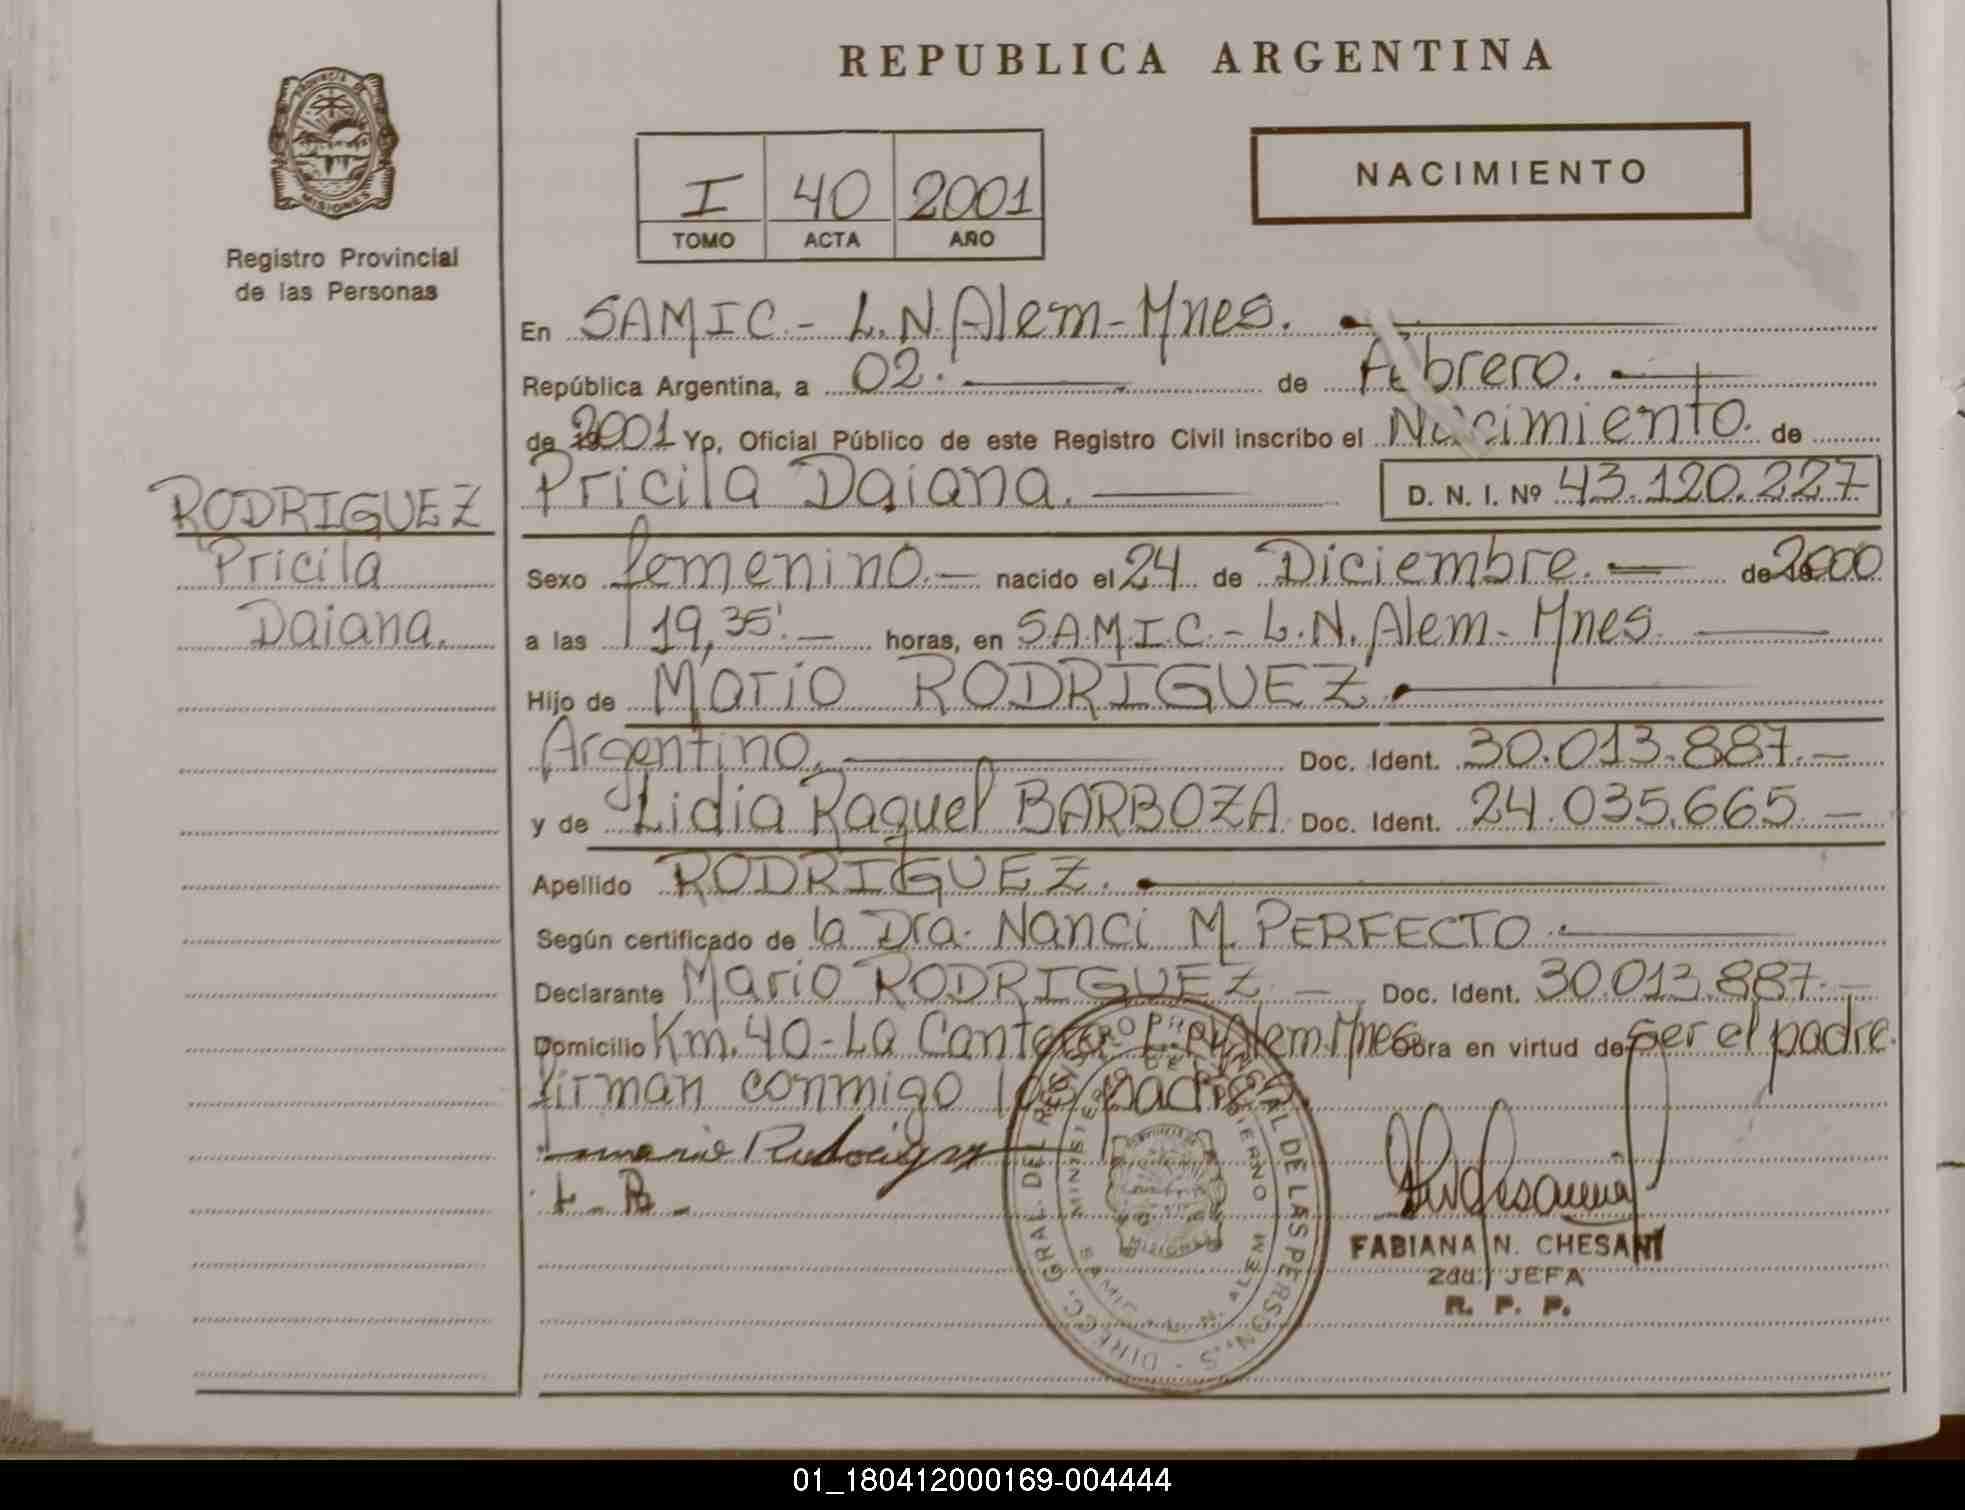 REPUBLICA ARGENTINA
PROVINCIA DE
MISIONES
Registro Provincial
de las Personas
I 40 2001
TOMO ACTA AÑO
NACIMIENTO
En SAMIC.- L.N.Alem-Mnes.
República Argentina, a 02. de Febrero.
de 2001 Yo, Oficial Público de este Registro Civil inscribo el Nacimiento. de
Pricila Daiana. D. N. I. Nº 43.120.227
RODRIGUEZ
Pricila
Daiana.
Sexo femenino.- nacido el 24 de Diciembre. de 2000
a las 19,35'. horas, en S.A.M.I.C.- L.N.Alem- Mnes
Hijo de Mario RODRIGUEZ.
Argentino. Doc. Ident. 30.013.887.-
y de Lidia Raquel BARBOZA. Doc. Ident. 24.035.665.-
Apellido RODRIGUEZ.
Según certificado de la Dra. Nanci M. PERFECTO.
Declarante Mario RODRIGUEZ - Doc. Ident. 30.013.887.-
Domicilio Km.40-La Cantera L.N.Alem.Mnes Obra en virtud de Ser el padre.
firman conmigo los padres.
mario Rodriguez
L. B.
DIRECC. GRAL. DEL REGISTRO PROVINCIAL DE LAS PERSON.S
MINISTERIO DE GOBIERNO
SAMIC - L. N. ALEM
MISIONES
FABIANA N. CHESANI
2da. JEFA
R. P. P.
01_180412000169-004444